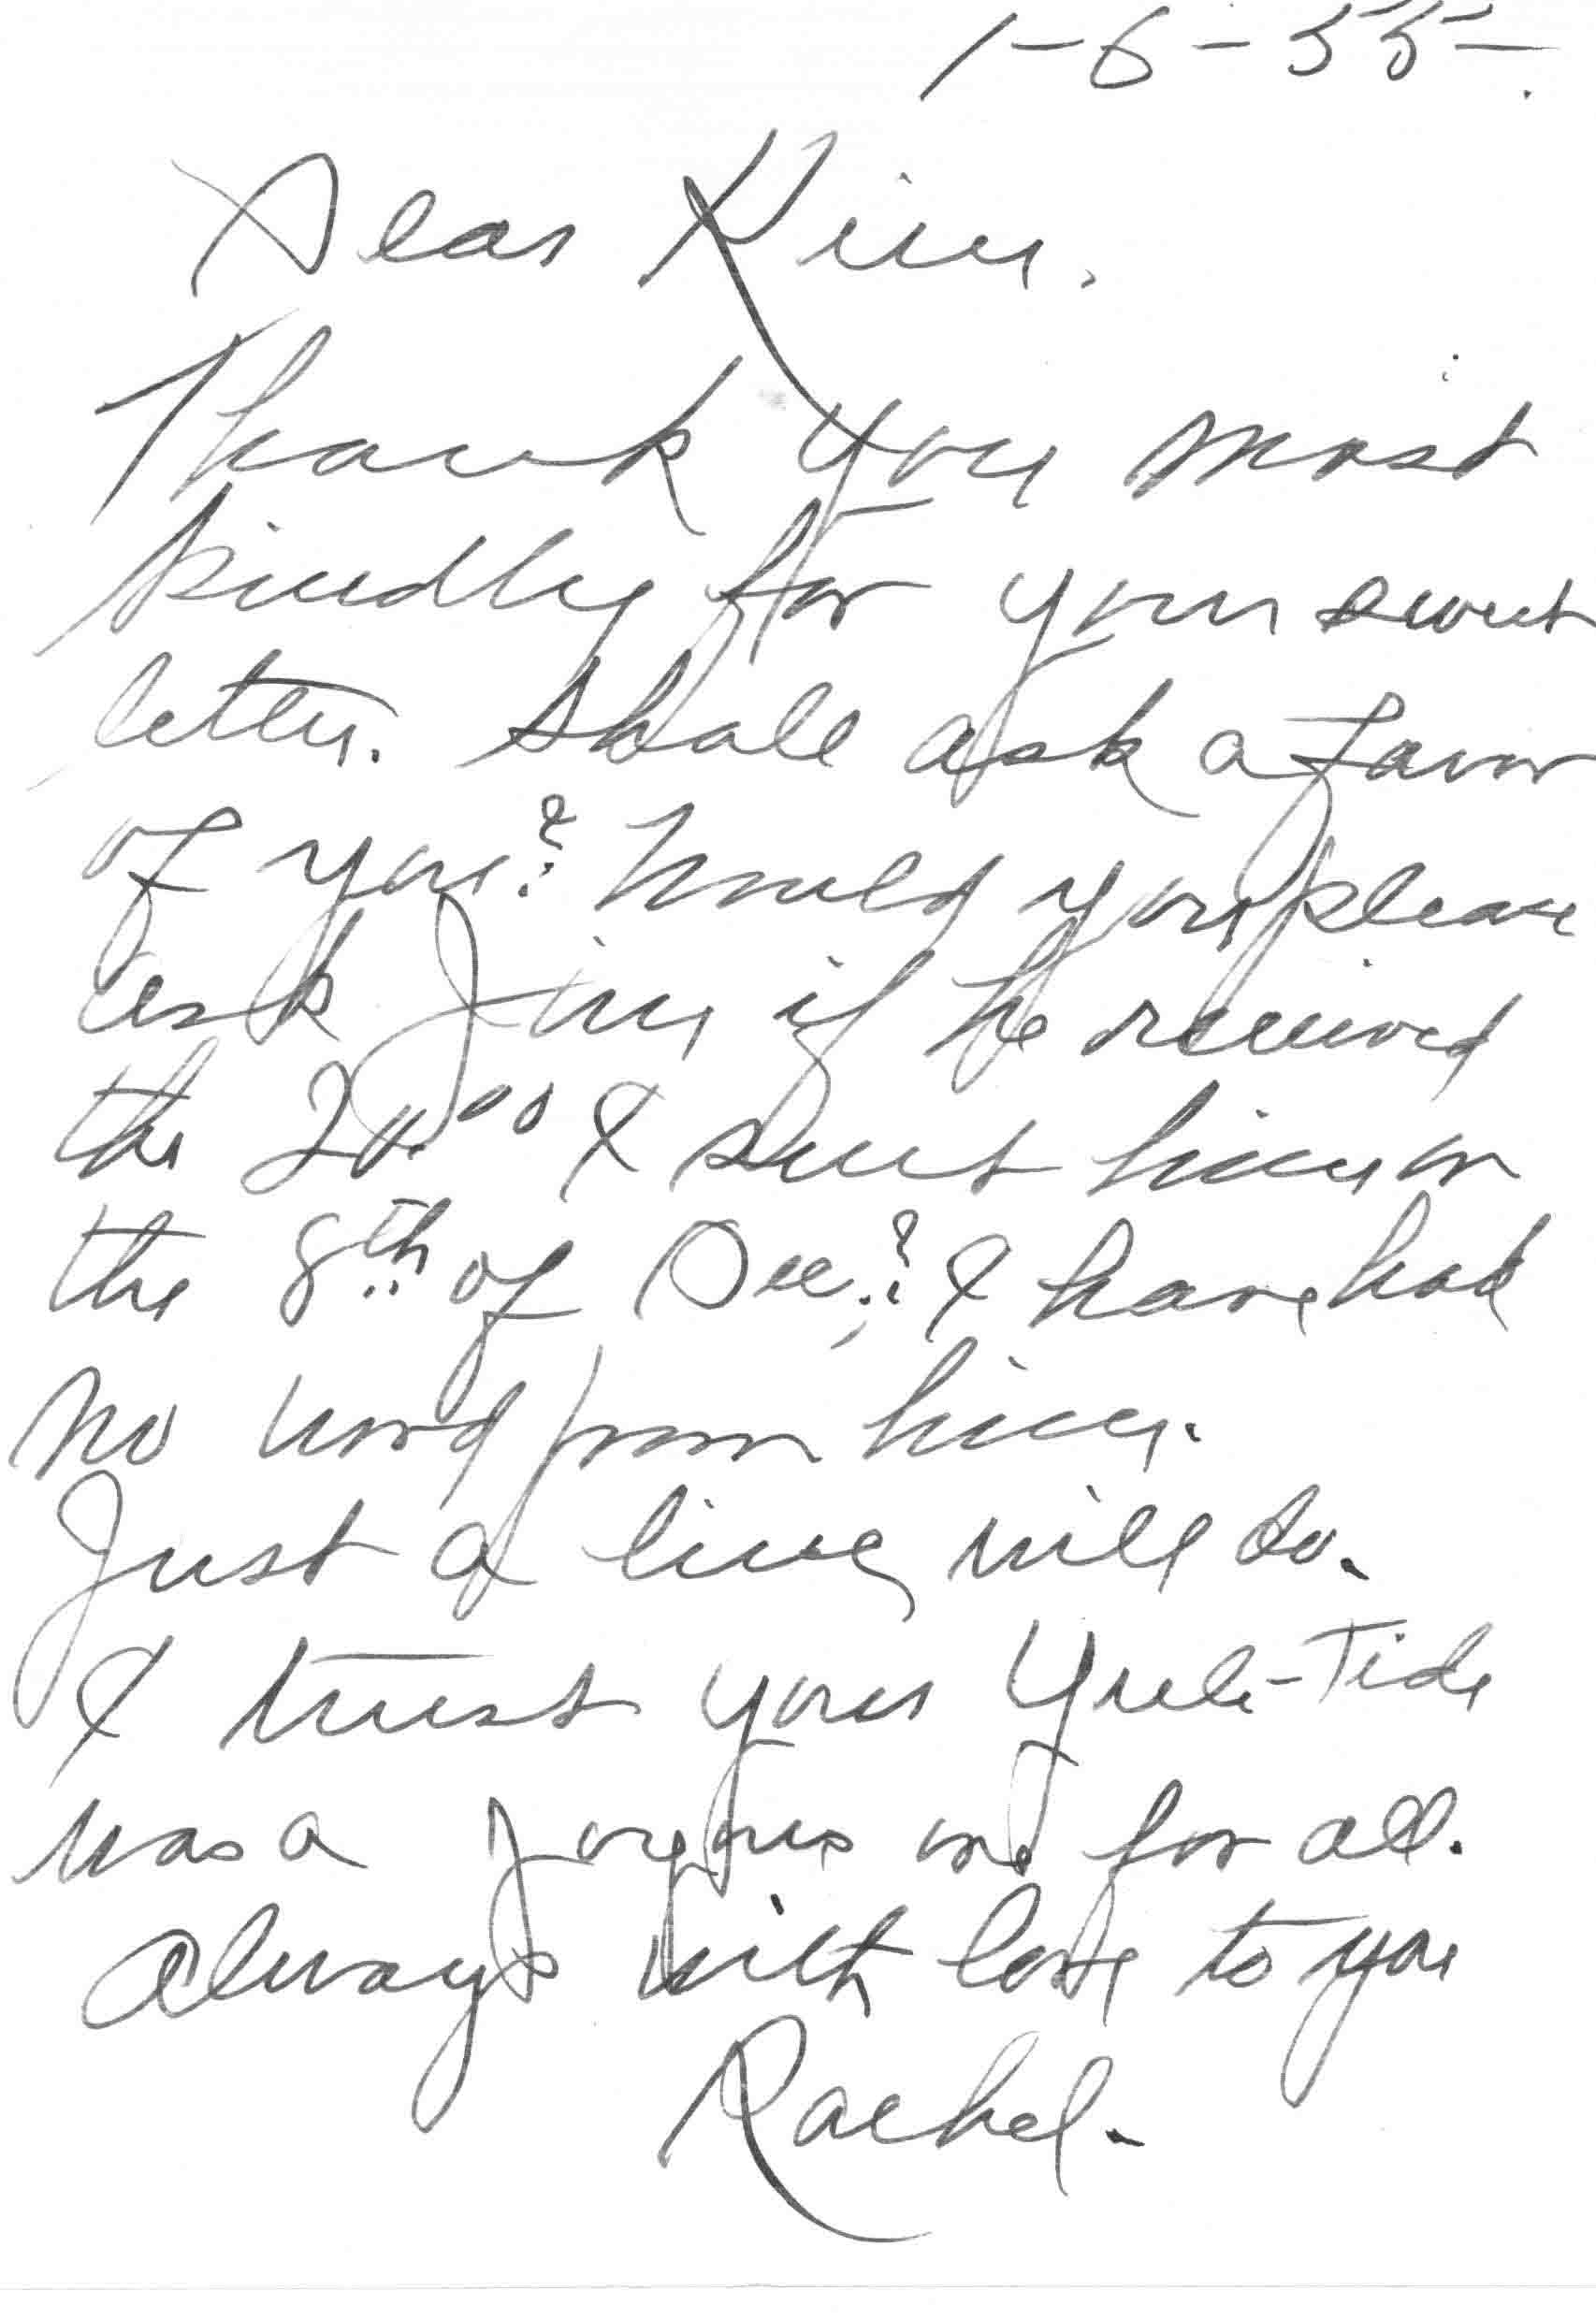 1-6-55-.
Dear Kim.
Thank you most
kindly for your sweet
letter. Shale ask a favor
of you? Would you please
ask Jim if he received
the 20.00 I sent him on
the 8th of Dec.? I have had
no word from him.
Just a line, will do.
I trust your Yule-Tide
was a joyous one for all.
Always with love to you
Rachel.